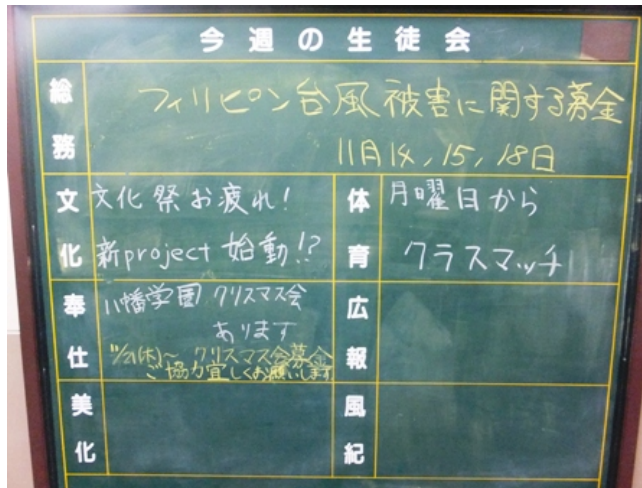 今週の生徒会
総務
フィリピン台風被害に関する募金
11月14,15,18日
文化
文化祭お疲れ!
新project 始動!?
体育
月曜日から
クラスマッチ
奉仕
八幡学園 クリスマス会
あります
11/21(木)〜 クリスマス会募金
ご協力宜しくお願いします
広報
美化
風紀